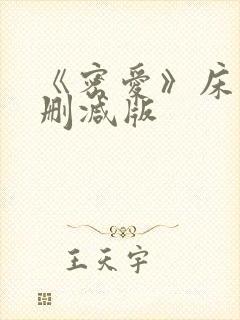 《密爱》床
删减版
王天宇